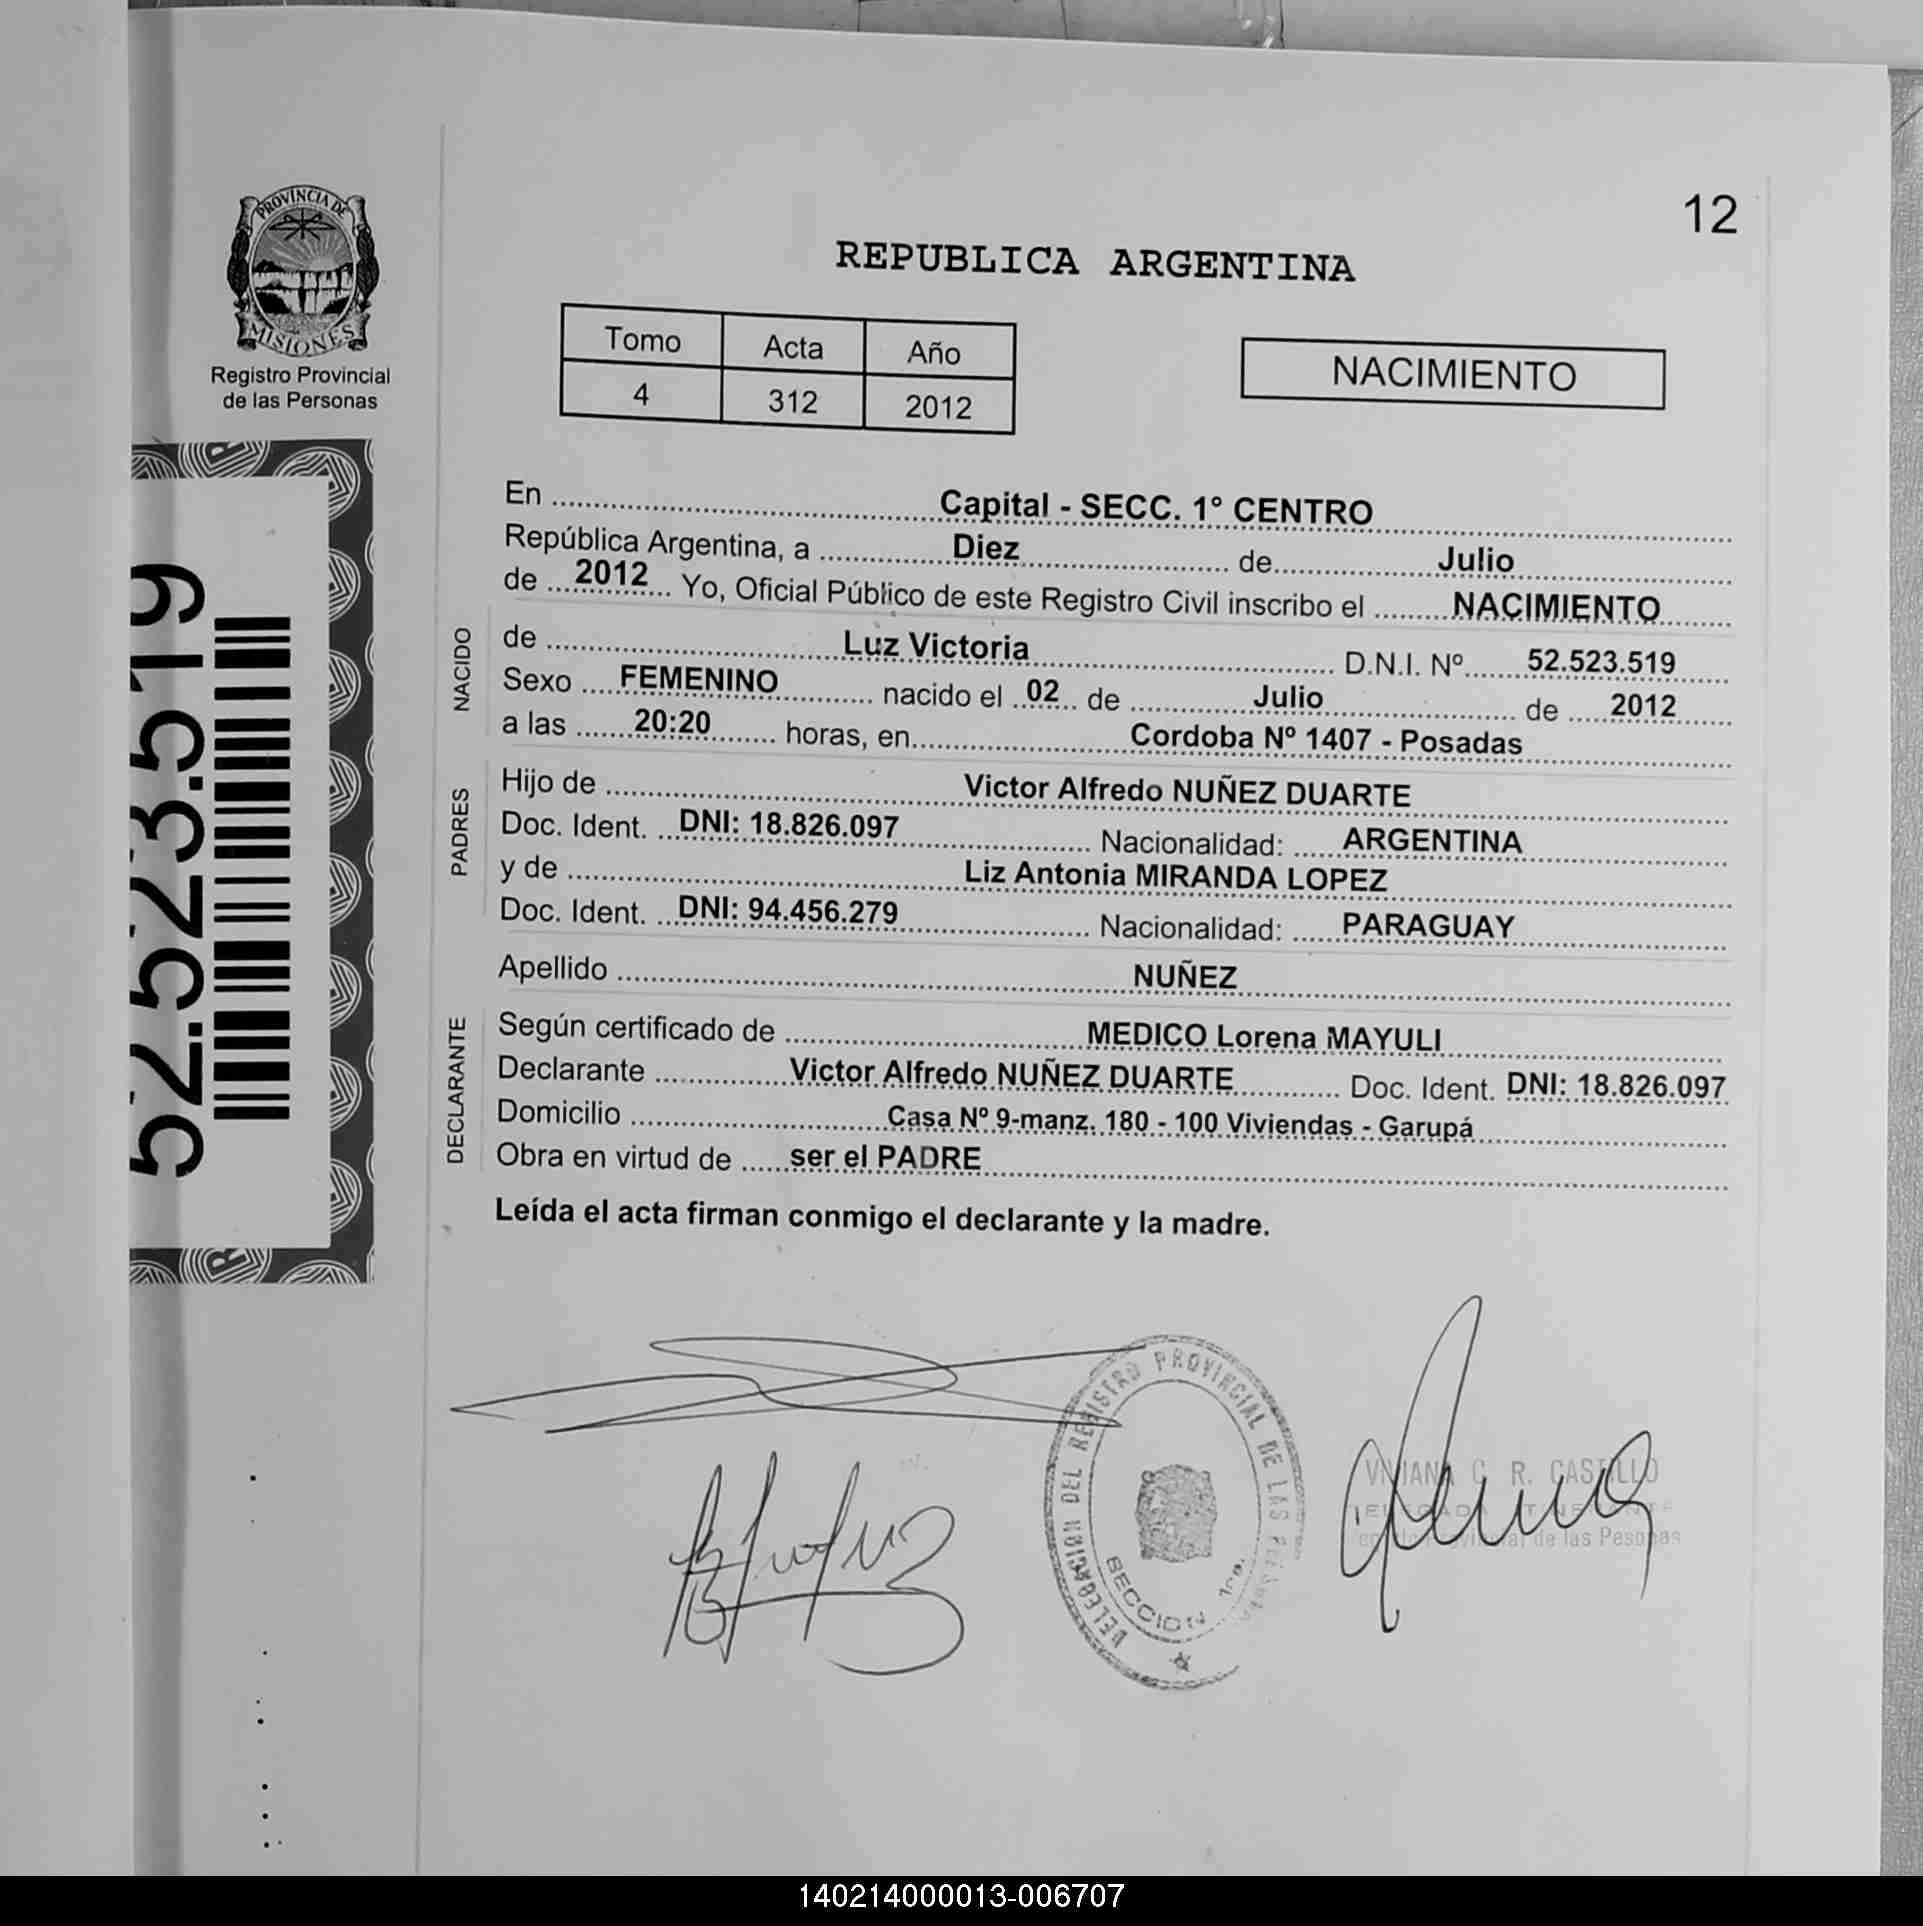 12
PROVINCIA DE
MISIONES
Registro Provincial
de las Personas
REPUBLICA ARGENTINA
Tomo Acta Año
4 312 2012
NACIMIENTO
52.523.519
En Capital - SECC. 1° CENTRO
República Argentina, a Diez de Julio
de 2012 Yo, Oficial Público de este Registro Civil inscribo el NACIMIENTO
NACIDO
de Luz Victoria D.N.I. Nº 52.523.519
Sexo FEMENINO nacido el 02 de Julio de 2012
a las 20:20 horas, en Cordoba Nº 1407 - Posadas
PADRES
Hijo de Victor Alfredo NUÑEZ DUARTE
Doc. Ident. DNI: 18.826.097 Nacionalidad: ARGENTINA
y de Liz Antonia MIRANDA LOPEZ
Doc. Ident. DNI: 94.456.279 Nacionalidad: PARAGUAY
Apellido NUÑEZ
DECLARANTE
Según certificado de MEDICO Lorena MAYULI
Declarante Victor Alfredo NUÑEZ DUARTE Doc. Ident. DNI: 18.826.097
Domicilio Casa Nº 9-manz. 180 - 100 Viviendas - Garupá
Obra en virtud de ser el PADRE
Leída el acta firman conmigo el declarante y la madre.
DELEGACION DEL REGISTRO PROVINCIAL DE LAS
SECCION
VIVIANA C. R. CASTILLO
de las Pesonas
140214000013-006707